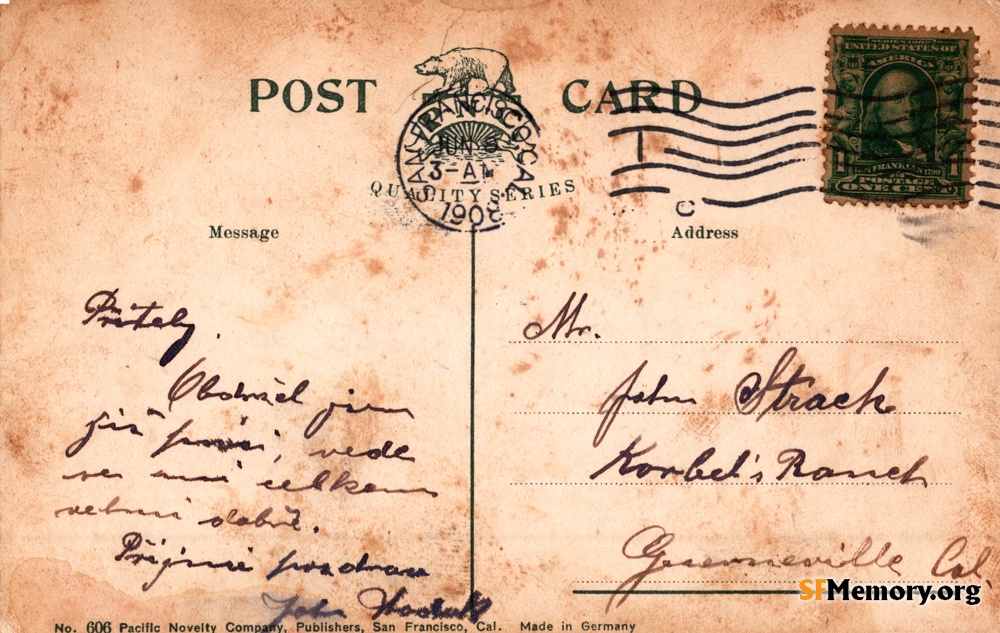 POST CARD
QUALITY SERIES
SAN FRANCISCO, CAL.
JUN 6
3-AM
1908
C
SERIES 1902
UNITED STATES OF
AMERICA
1 FRANKLIN 1790 1
POSTAGE
ONE CENT
Message
Příteli,
Obdržel jsem
již práci, vede
se mi celkem
velmi dobře.
Přijmi pozdrav
John
Address
Mr.
John Strack
Korbel's Ranch
Guerneville Cal.
SFMemory.org
No. 606 Pacific Novelty Company, Publishers, San Francisco, Cal. Made in Germany